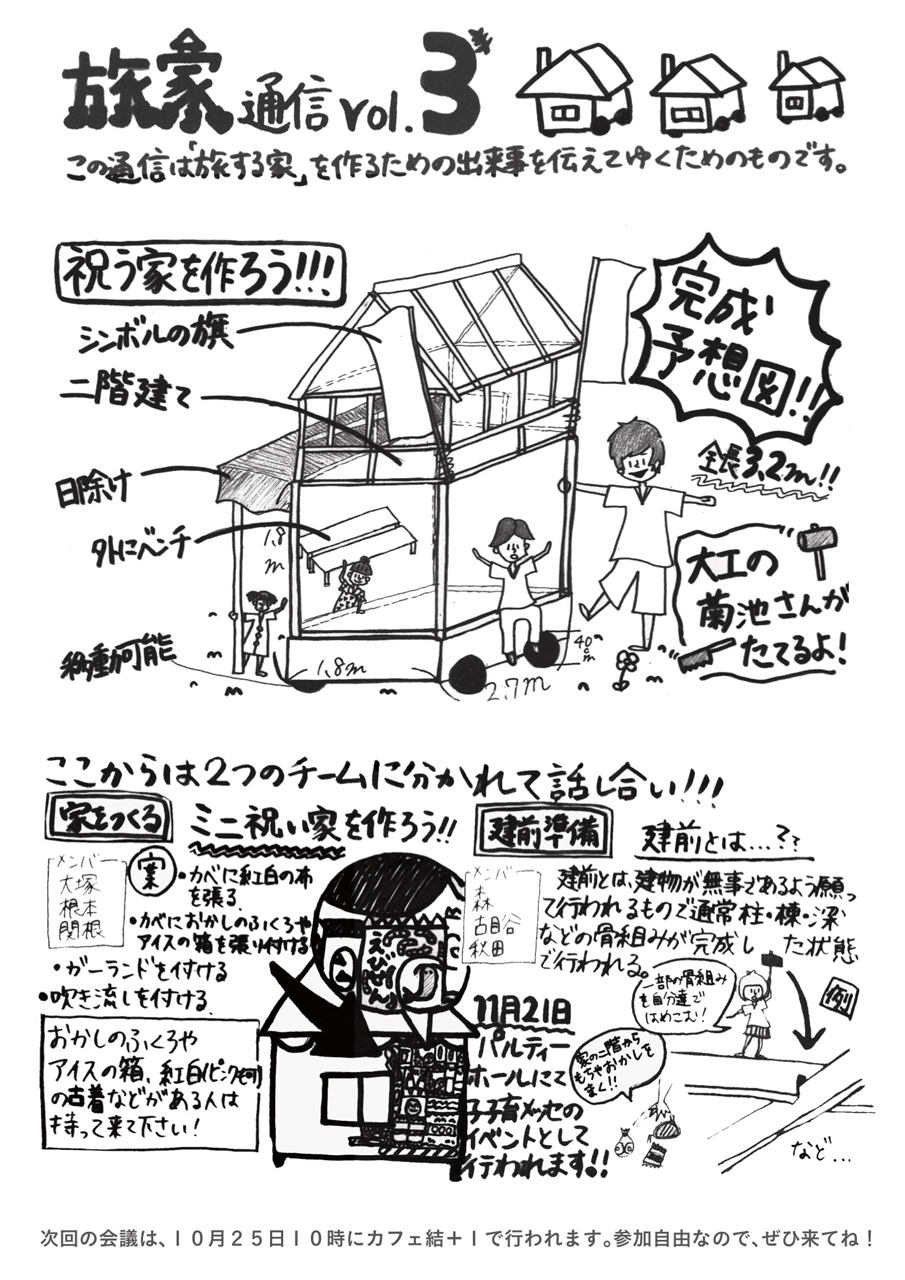 旅家通信 vol.3
この通信は「旅する家」を作るための出来事を伝えてゆくためのものです。
祝う家を作ろう!!!
完成
予想図!!
シンボルの旗
二階建て
日除け
外にベンチ
移動可能
全長3.2m!!
大工の
菊池さんが
たてるよ!
1.8
m
1.8m
2.7m
40
cm
ここからは2つのチームに分かれて話し合い!!!
家をつくる
ミニ祝い家を作ろう!!
メンバー
大塚
根本
関根
案
・カベに紅白の布
を張る.
・カベにおかしのふくろや
アイスの箱を張り付ける
・ガーランドを付ける
・吹き流しを付ける.
おかしのふくろや
アイスの箱、紅白(ピンクも可)
の古着などがある人は
持って来て下さい!
えびせん
建前準備
建前とは...??
メンバー
森
古自谷
秋田
建前とは、建物が無事であるよう願っ
て行われるもので通常柱・棟・梁
などの骨組みが完成した状態
で行われる。
11月21日
パルティー
ホールにて
子子育メッセの
イベントとして
行われます!!
一部の骨組み
を自分達で
はめこむ!
例
家の二階から
もちやおかしを
まく!!
など...
次回の会議は、10月25日10時にカフェ結+1で行われます。参加自由なので、ぜひ来てね!